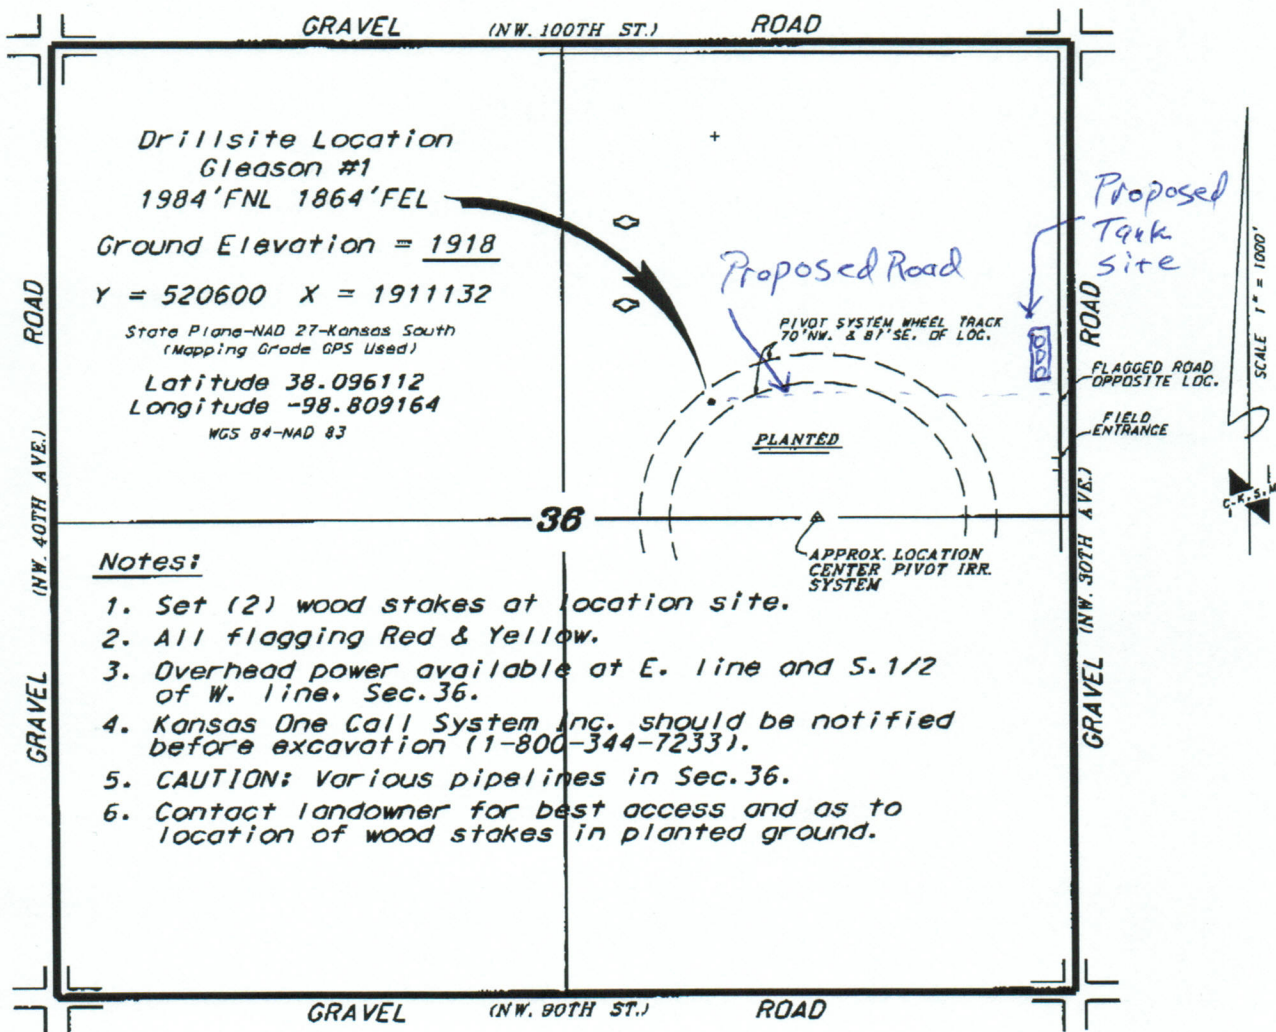 GRAVEL (NW. 100TH ST.) ROAD
Drillsite Location
Gleason #1
1984'FNL 1864'FEL
Ground Elevation = 1918
Y = 520600 X = 1911132
State Plane-NAD 27-Kansas South
(Mapping Grade GPS Used)
Latitude 38.096112
Longitude -98.809164
WGS 84-NAD 83
Proposed
Tank
site
Proposed Road
PIVOT SYSTEM WHEEL TRACK
70'NW. & 87'SE. OF LOC.
FLAGGED ROAD
OPPOSITE LOC.
FIELD
ENTRANCE
PLANTED
36
APPROX. LOCATION
CENTER PIVOT IRR.
SYSTEM
Notes:
1. Set (2) wood stakes at location site.
2. All flagging Red & Yellow.
3. Overhead power available at E. line and S. 1/2
of W. line, Sec. 36.
4. Kansas One Call System Inc. should be notified
before excavation (1-800-344-7233).
5. CAUTION: Various pipelines in Sec. 36.
6. Contact landowner for best access and as to
location of wood stakes in planted ground.
GRAVEL (NW. 40TH AVE.) ROAD
GRAVEL (NW. 30TH AVE.) ROAD
SCALE 1" = 1000'
C.K.S.M
GRAVEL (NW. 90TH ST.) ROAD